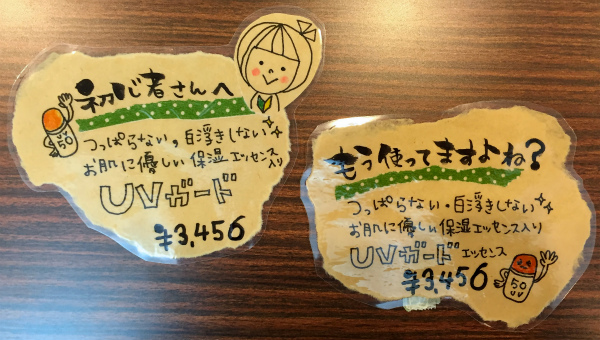 初じ者さんへ
つっぱらない,白浮きしない
お肌に優しい保湿エッセンス入り
UVガード
¥3,456
50
もう使ってますよね?
つっぱらない・白浮きしない
お肌に優しい保湿エッセンス入り
UVガードエッセンス
¥3,456
50
UV